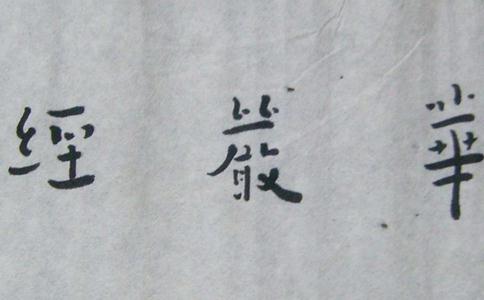 華嚴經